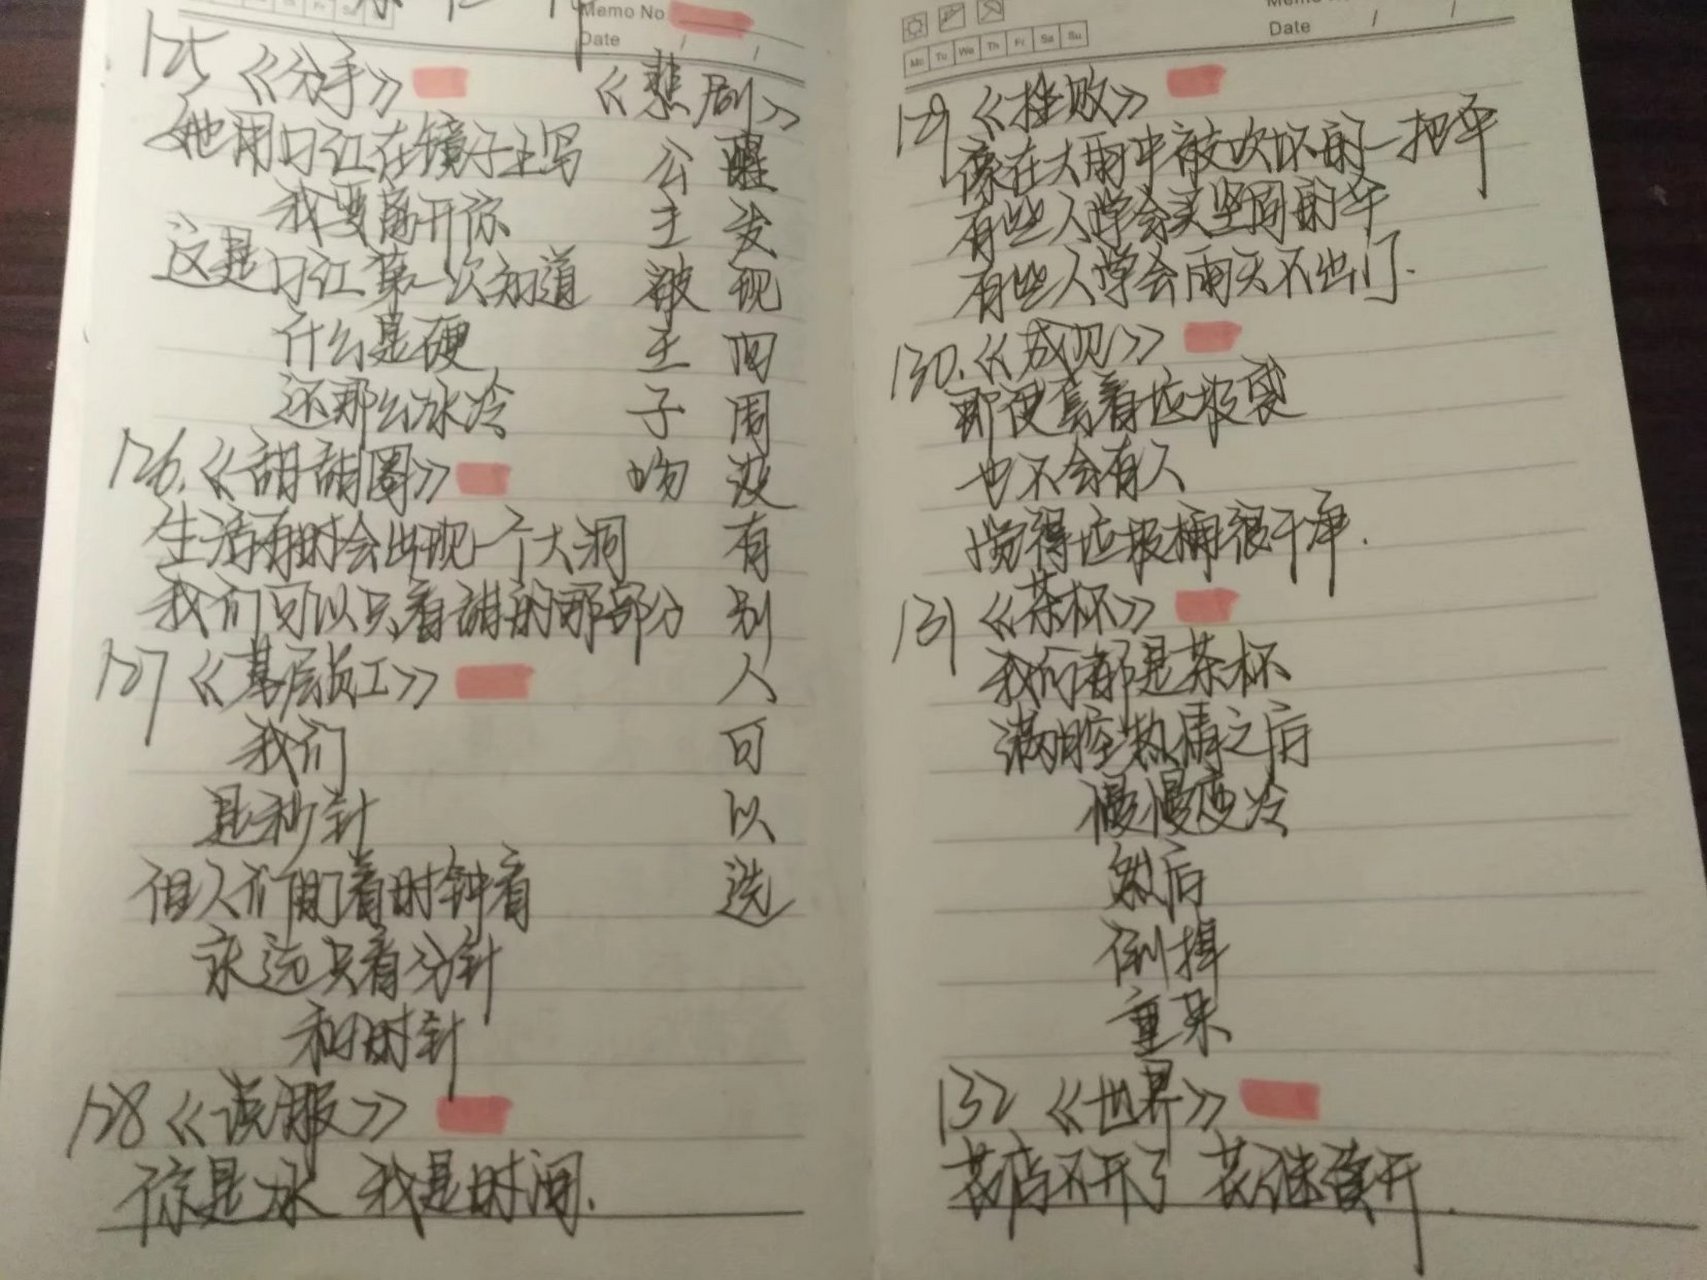 Memo No
Date
125 《分手》
她用口红在镜子上写
我要离开你
这是口红第一次知道
什么是硬
还那么冰冷
126.《甜甜圈》
生活有时会出现一个大洞
我们可以只看甜的那部分
127《基层员工》
我们
是秒针
但人们盯着时钟看
永远只看分针
和时针
128《说服》
你是水 我是时间.
《悲剧》
公主被王子吻
醒发现周围没有别人可以选
Date
Mo Tu We Th Fr Sa Su
129《挫败》
像在大雨中被吹坏的一把伞
有些人学会买坚固的伞
有些人学会雨天不出门.
130.《成见》
即便套着垃圾袋
也不会有人
觉得垃圾桶很干净.
131《茶杯》
我们都是茶杯
满腔热情之后
慢慢变冷
然后
倒掉
重来
132《世界》
花店不开了 花继续开.